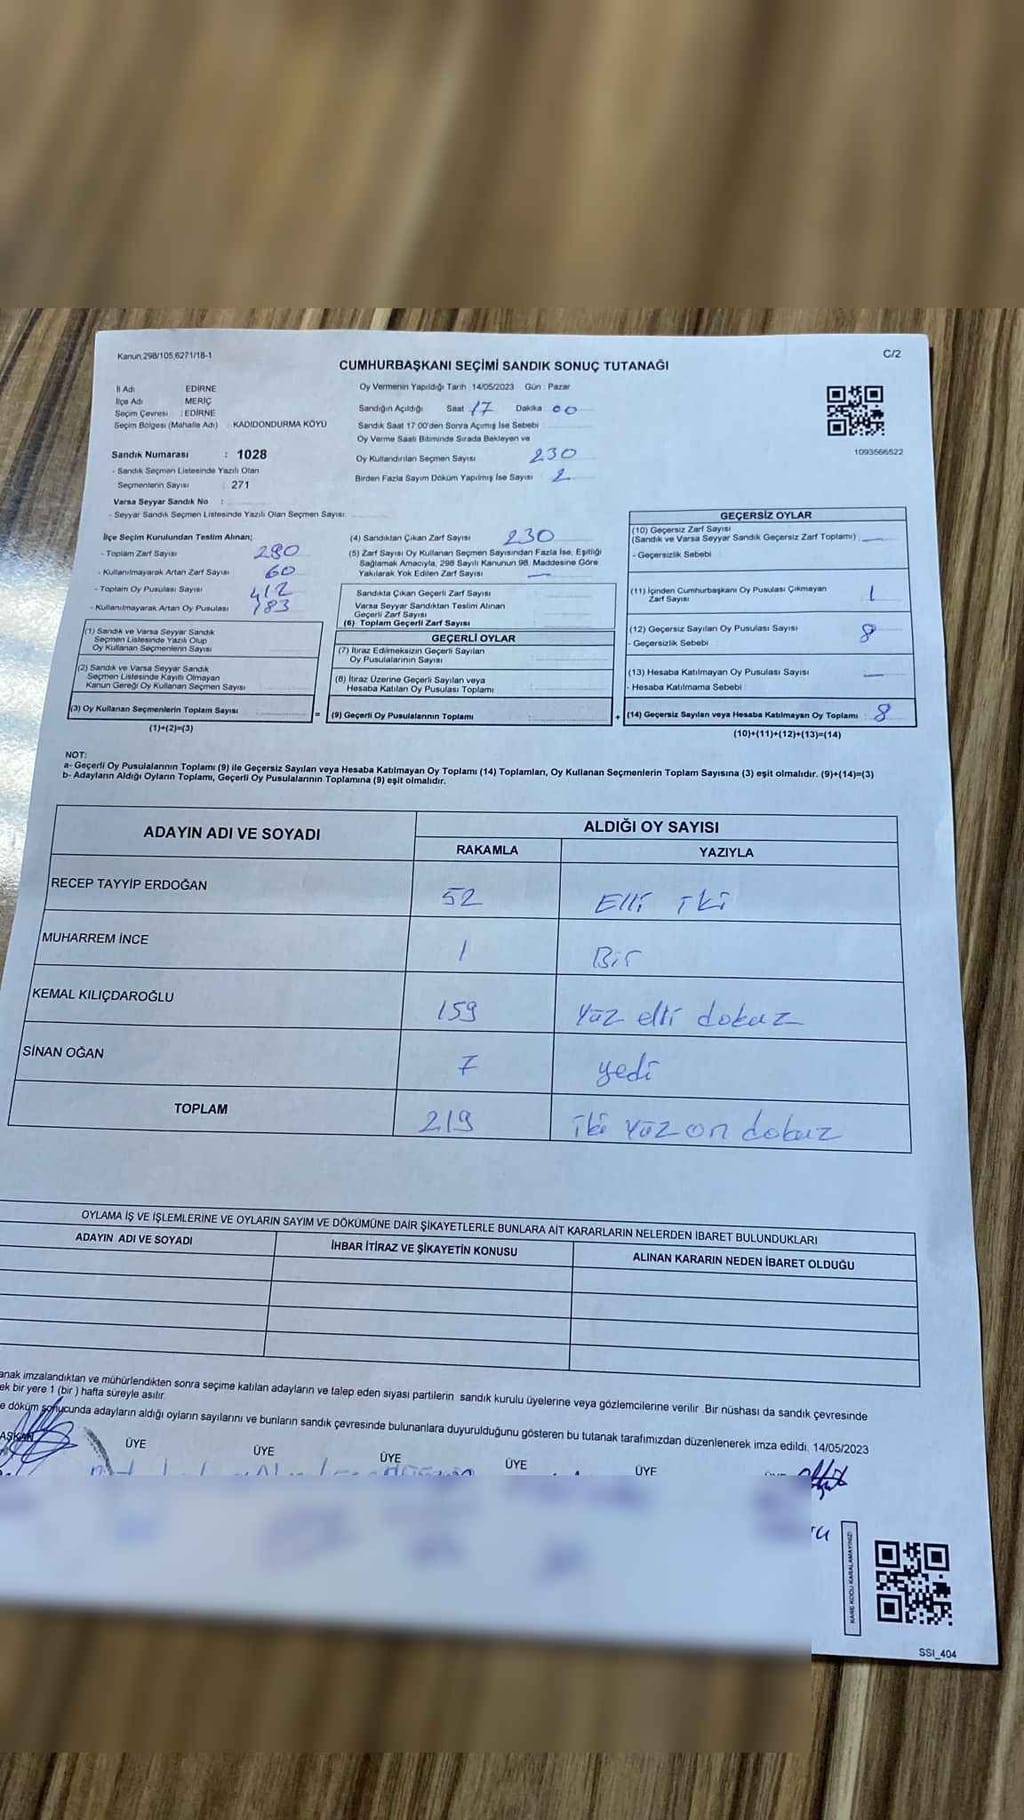 Kanun,298/105,6271/18-1
C/2
CUMHURBAŞKANI SEÇİMİ SANDIK SONUÇ TUTANAĞI
İl Adı EDİRNE
İlçe Adı MERİÇ
Seçim Çevresi : EDİRNE
Seçim Bölgesi (Mahalle Adı) : KADIDONDURMA KÖYÜ
Sandık Numarası : 1028
- Sandık Seçmen Listesinde Yazılı Olan
Seçmenlerin Sayısı : 271
Varsa Seyyar Sandık No :
- Seyyar Sandık Seçmen Listesinde Yazılı Olan Seçmen Sayısı:
Oy Vermenin Yapıldığı Tarih 14/05/2023 Gün : Pazar
Sandığın Açıldığı Saat 17 Dakika 00
Sandık Saat 17.00'den Sonra Açımış İse Sebebi
Oy Verme Saati Bitiminde Sırada Bekleyen ve
Oy Kullandırılan Seçmen Sayısı 230
Birden Fazla Sayım Döküm Yapılmış İse Sayısı 2
1093566522
İlçe Seçim Kurulundan Teslim Alınan;
- Toplam Zarf Sayısı 290
- Kullanılmayarak Artan Zarf Sayısı 60
- Toplam Oy Pusulası Sayısı 412
- Kullanılmayarak Artan Oy Pusulası 183
(1) Sandık ve Varsa Seyyar Sandık
Seçmen Listesinde Yazılı Olup
Oy Kullanan Seçmenlerin Sayısı
(2) Sandık ve Varsa Seyyar Sandık
Seçmen Listesinde Kayıtlı Olmayan
Kanun Gereği Oy Kullanan Seçmen Sayısı
(3) Oy Kullanan Seçmenlerin Toplam Sayısı
(1)+(2)=(3)
(4) Sandıktan Çıkan Zarf Sayısı 230
(5) Zarf Sayısı Oy Kullanan Seçmen Sayısından Fazla İse, Eşitliği
Sağlamak Amacıyla, 298 Sayılı Kanunun 98. Maddesine Göre
Yakılarak Yok Edilen Zarf Sayısı —
Sandıkta Çıkan Geçerli Zarf Sayısı
Varsa Seyyar Sandıktan Teslim Alınan
Geçerli Zarf Sayısı
(6) Toplam Geçerli Zarf Sayısı
GEÇERLİ OYLAR
(7) İtiraz Edilmeksizin Geçerli Sayılan
Oy Pusulalarının Sayısı
(8) İtiraz Üzerine Geçerli Sayılan veya
Hesaba Katılan Oy Pusulası Toplamı
= (9) Geçerli Oy Pusulalarının Toplamı
GEÇERSİZ OYLAR
(10) Geçersiz Zarf Sayısı
(Sandık ve Varsa Seyyar Sandık Geçersiz Zarf Toplamı) —
- Geçersizlik Sebebi
(11) İçinden Cumhurbaşkanı Oy Pusulası Çıkmayan
Zarf Sayısı 1
(12) Geçersiz Sayılan Oy Pusulası Sayısı 8
- Geçersizlik Sebebi
(13) Hesaba Katılmayan Oy Pusulası Sayısı —
- Hesaba Katılmama Sebebi
+ (14) Geçersiz Sayılan veya Hesaba Katılmayan Oy Toplamı 8
(10)+(11)+(12)+(13)=(14)
NOT:
a- Geçerli Oy Pusulalarının Toplamı (9) ile Geçersiz Sayılan veya Hesaba Katılmayan Oy Toplamı (14) Toplamları, Oy Kullanan Seçmenlerin Toplam Sayısına (3) eşit olmalıdır. (9)+(14)=(3)
b- Adayların Aldığı Oyların Toplamı, Geçerli Oy Pusulalarının Toplamına (9) eşit olmalıdır.
ADAYIN ADI VE SOYADI
ALDIĞI OY SAYISI
RAKAMLA YAZIYLA
RECEP TAYYİP ERDOĞAN 52 Elli iki
MUHARREM İNCE 1 Bir
KEMAL KILIÇDAROĞLU 159 yüz elli dokuz
SİNAN OĞAN 7 yedi
TOPLAM 219 iki yüz on dokuz
OYLAMA İŞ VE İŞLEMLERİNE VE OYLARIN SAYIM VE DÖKÜMÜNE DAİR ŞİKAYETLERLE BUNLARA AİT KARARLARIN NELERDEN İBARET BULUNDUKLARI
ADAYIN ADI VE SOYADI İHBAR İTİRAZ VE ŞİKAYETİN KONUSU ALINAN KARARIN NEDEN İBARET OLDUĞU
anak imzalandıktan ve mühürlendikten sonra seçime katılan adayların ve talep eden siyasi partilerin sandık kurulu üyelerine veya gözlemcilerine verilir. Bir nüshası da sandık çevresinde
ek bir yere 1 (bir) hafta süreyle asılır.
e döküm sonucunda adayların aldığı oyların sayılarını ve bunların sandık çevresinde bulunanlara duyurulduğunu gösteren bu tutanak tarafımızdan düzenlenerek imza edildi. 14/05/2023
AŞKAN ÜYE ÜYE ÜYE ÜYE ÜYE
KARE KODU KARALAMAYINIZ!
SSI_404